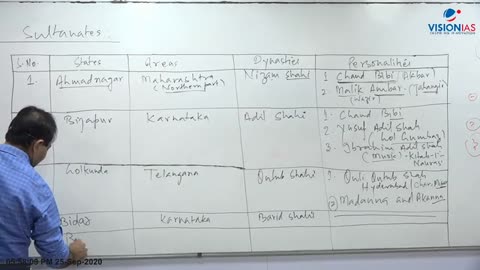 VISIONIAS
INSPIRING INNOVATION
Sultanates
S.No. States Areas Dynasties Personalities
1 Ahmadnagar Maharashtra (Northern part) Nizam Shahi 1. Chand Bibi / Akbar
2. Malik Ambar - (Jahangir)
Bijapur Karnataka Adil Shahi 1. Chand Bibi
2. Yusuf Adil Shah
(Gol Gumbaz)
3. Ibrahim Adil Shah
(Music) - Kitab-i-
Nauras
Golkunda Telangana Qutub Shahi 1. Quli Qutub Shah
Hyderabad / Char Minar
2 Madanna and Akanna
Bidar Karnataka Barid Shahi
PM 25-Sep-2020